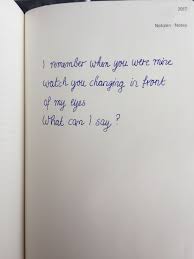 2017
Notizen · Notes
I remember when you were mine
watch you changing in front
of my eyes
What can I say?